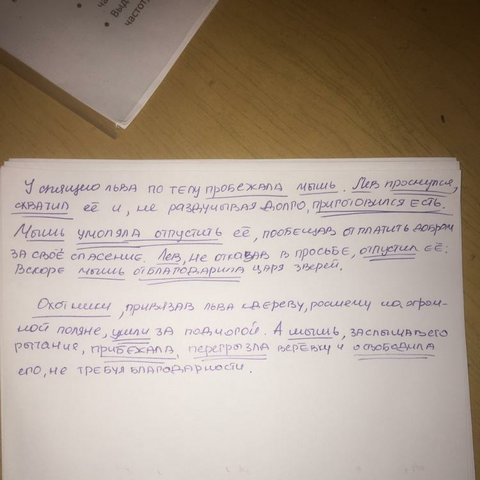 • ча
• Выде
частот
У спящего льва по телу пробежала мышь. Лев проснулся,
схватил её и, не раздумывая долго, приготовился есть.
Мышь умоляла отпустить её, пообещав отплатить добром
за своё спасение. Лев, не отказав в просьбе, отпустил её.
Вскоре мышь отблагодарила царя зверей.
Охотники, привязав льва к дереву, росшему на огром-
ной поляне, ушли за подмогой. А мышь, заслышав его
рычание, прибежала, перегрызла верёвку и освободила
его, не требуя благодарности.